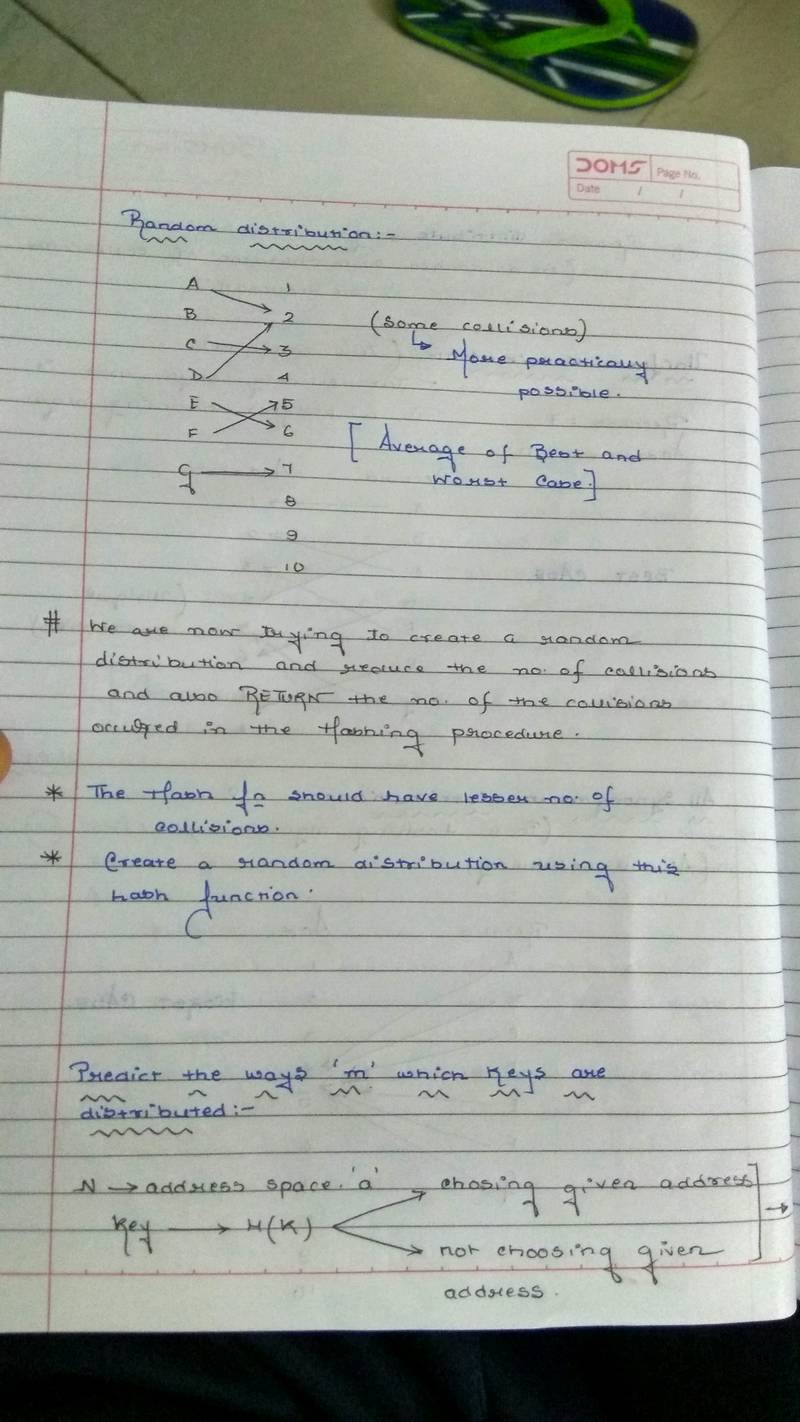 DOMS
Page No.
Date / /
Random distribution:-
A 1
B 2
C 3
D 4
E 5
F 6
G 7
8
9
10
(some collisions)
↳ More practically
possible.
[Average of Best and
Worst Case.]
# We are now trying to create a random
distribution and reduce the no. of collisions
and also RETURN the no. of the collisions
occured in the Hashing procedure.
* The Hash fn should have lesser no. of
collisions.
* Create a random distribution using this
hash function.
Predict the ways 'm' which Keys are
distributed:-
N → address space 'a' chosing given address
Key → H(K)
not choosing given
address.